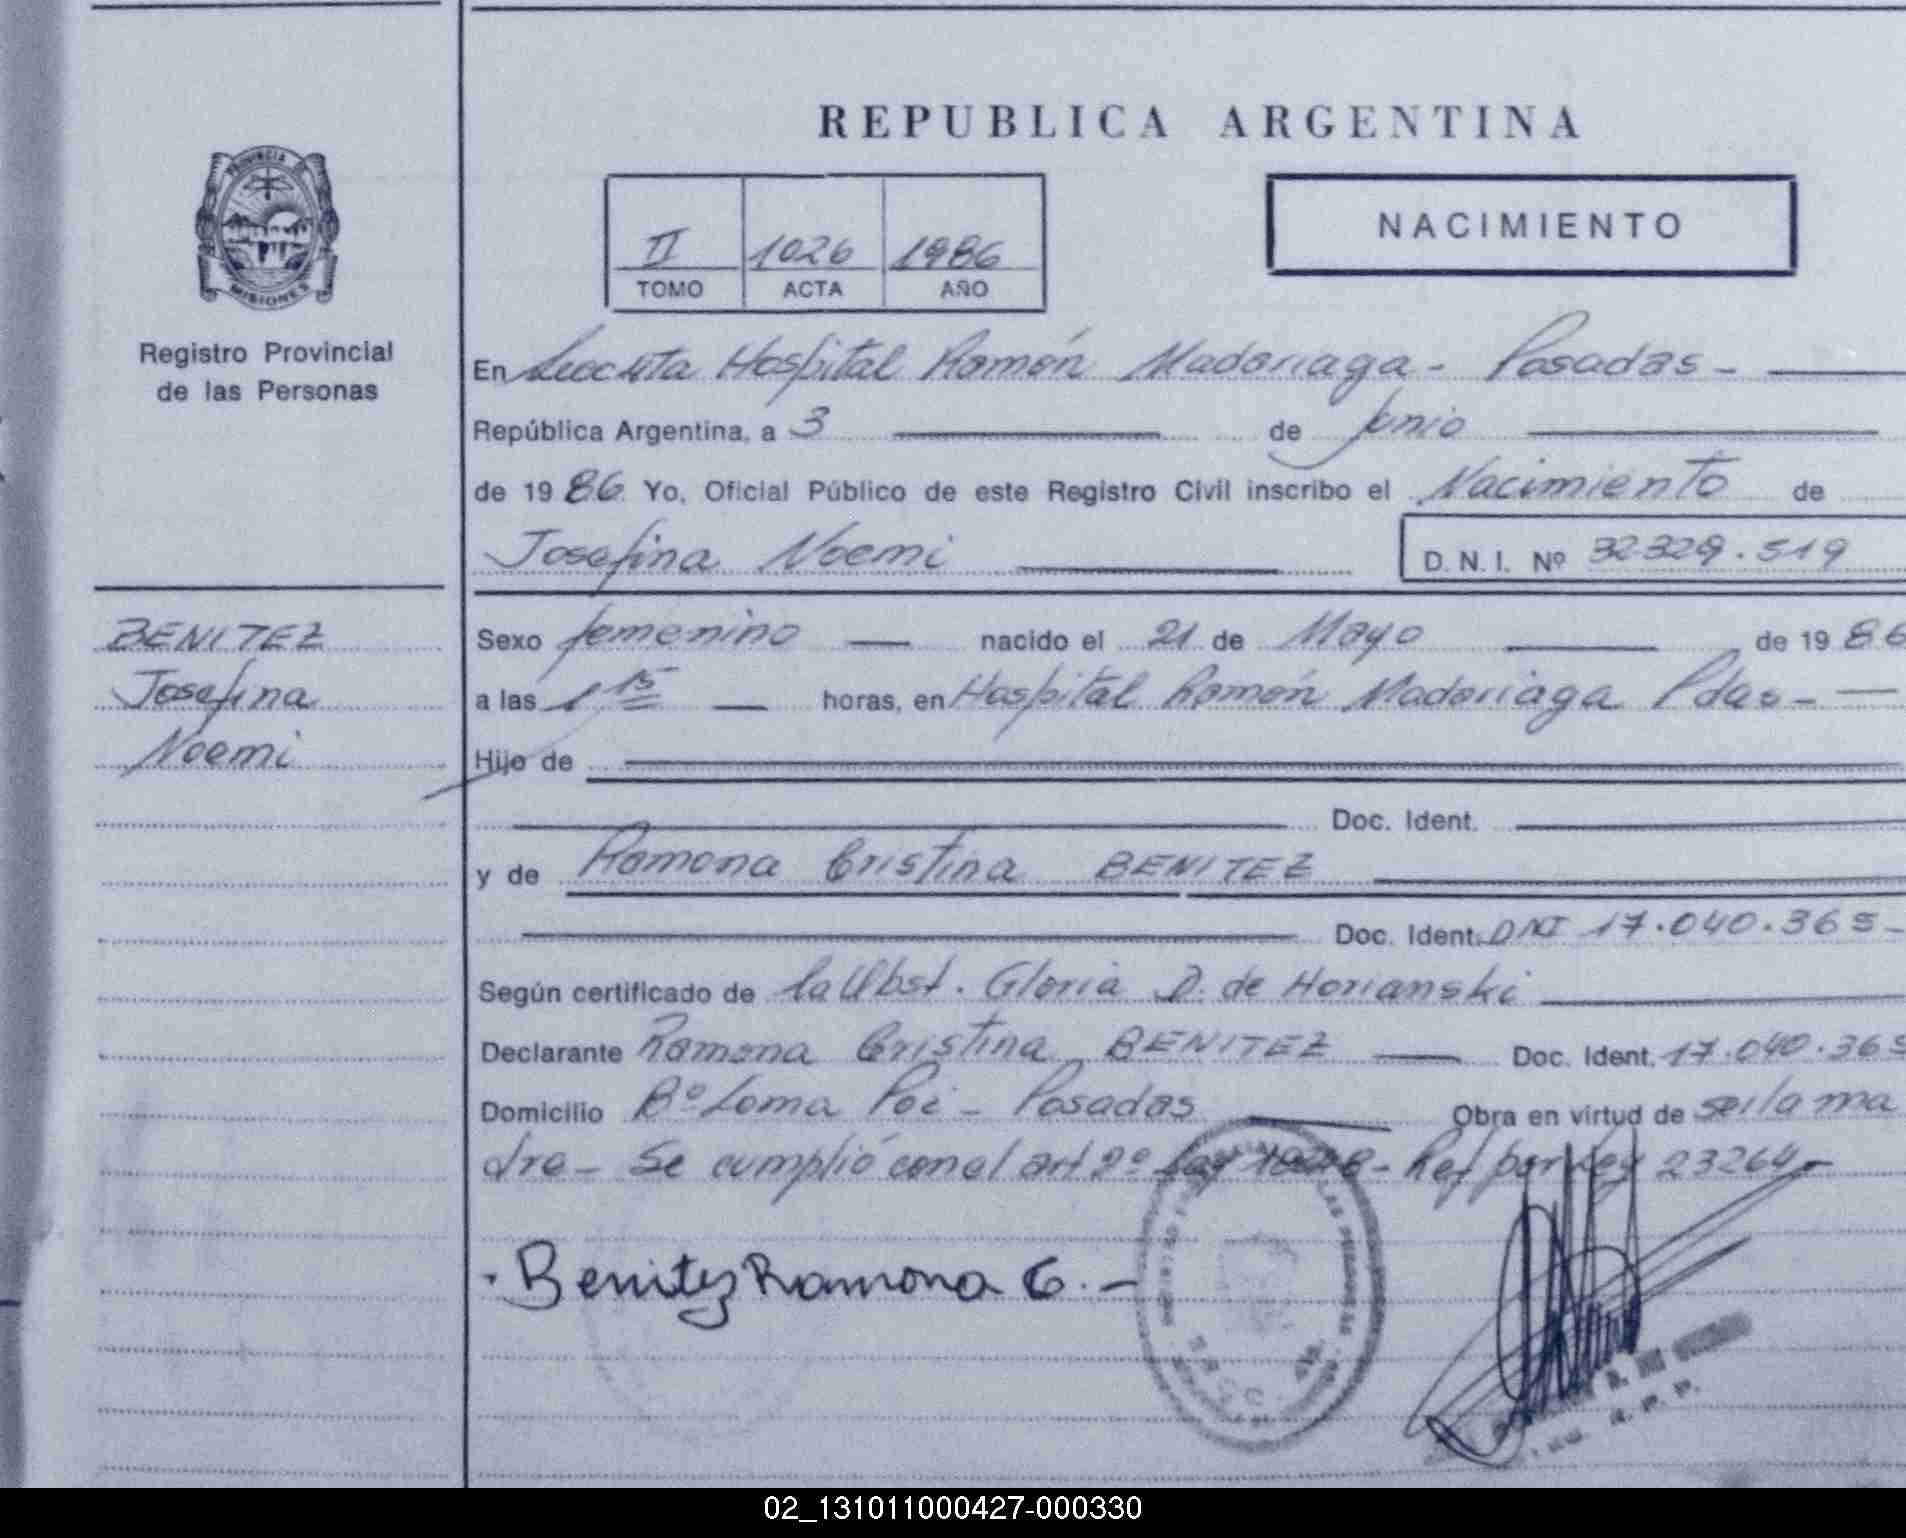 REPUBLICA ARGENTINA
PROVINCIA DE
MISIONES
Registro Provincial
de las Personas
II 1026 1986
TOMO ACTA AÑO
NACIMIENTO
En Hospital Ramón Madariaga - Posadas -
República Argentina, a 3 de Junio
de 1986 Yo, Oficial Público de este Registro Civil inscribo el Nacimiento de
Josefina Noemi D.N.I. Nº 32329.519
BENITEZ
Josefina
Noemi
Sexo femenino nacido el 21 de Mayo de 1986
a las 1 15 horas, en Hospital Ramón Madariaga Pdas -
Hijo de
Doc. Ident.
y de Ramona Cristina BENITEZ
Doc. Ident. DNI 17.040.365 -
Según certificado de la Obst. Gloria D. de Horianski
Declarante Ramona Cristina BENITEZ Doc. Ident. 17.040.365
Domicilio Bº Loma Poi - Posadas Obra en virtud de ser la ma
dre - Se cumplió con el art 2º Ley - Ref por Ley 23264 -
Benitez Ramona C. -
02_131011000427-000330